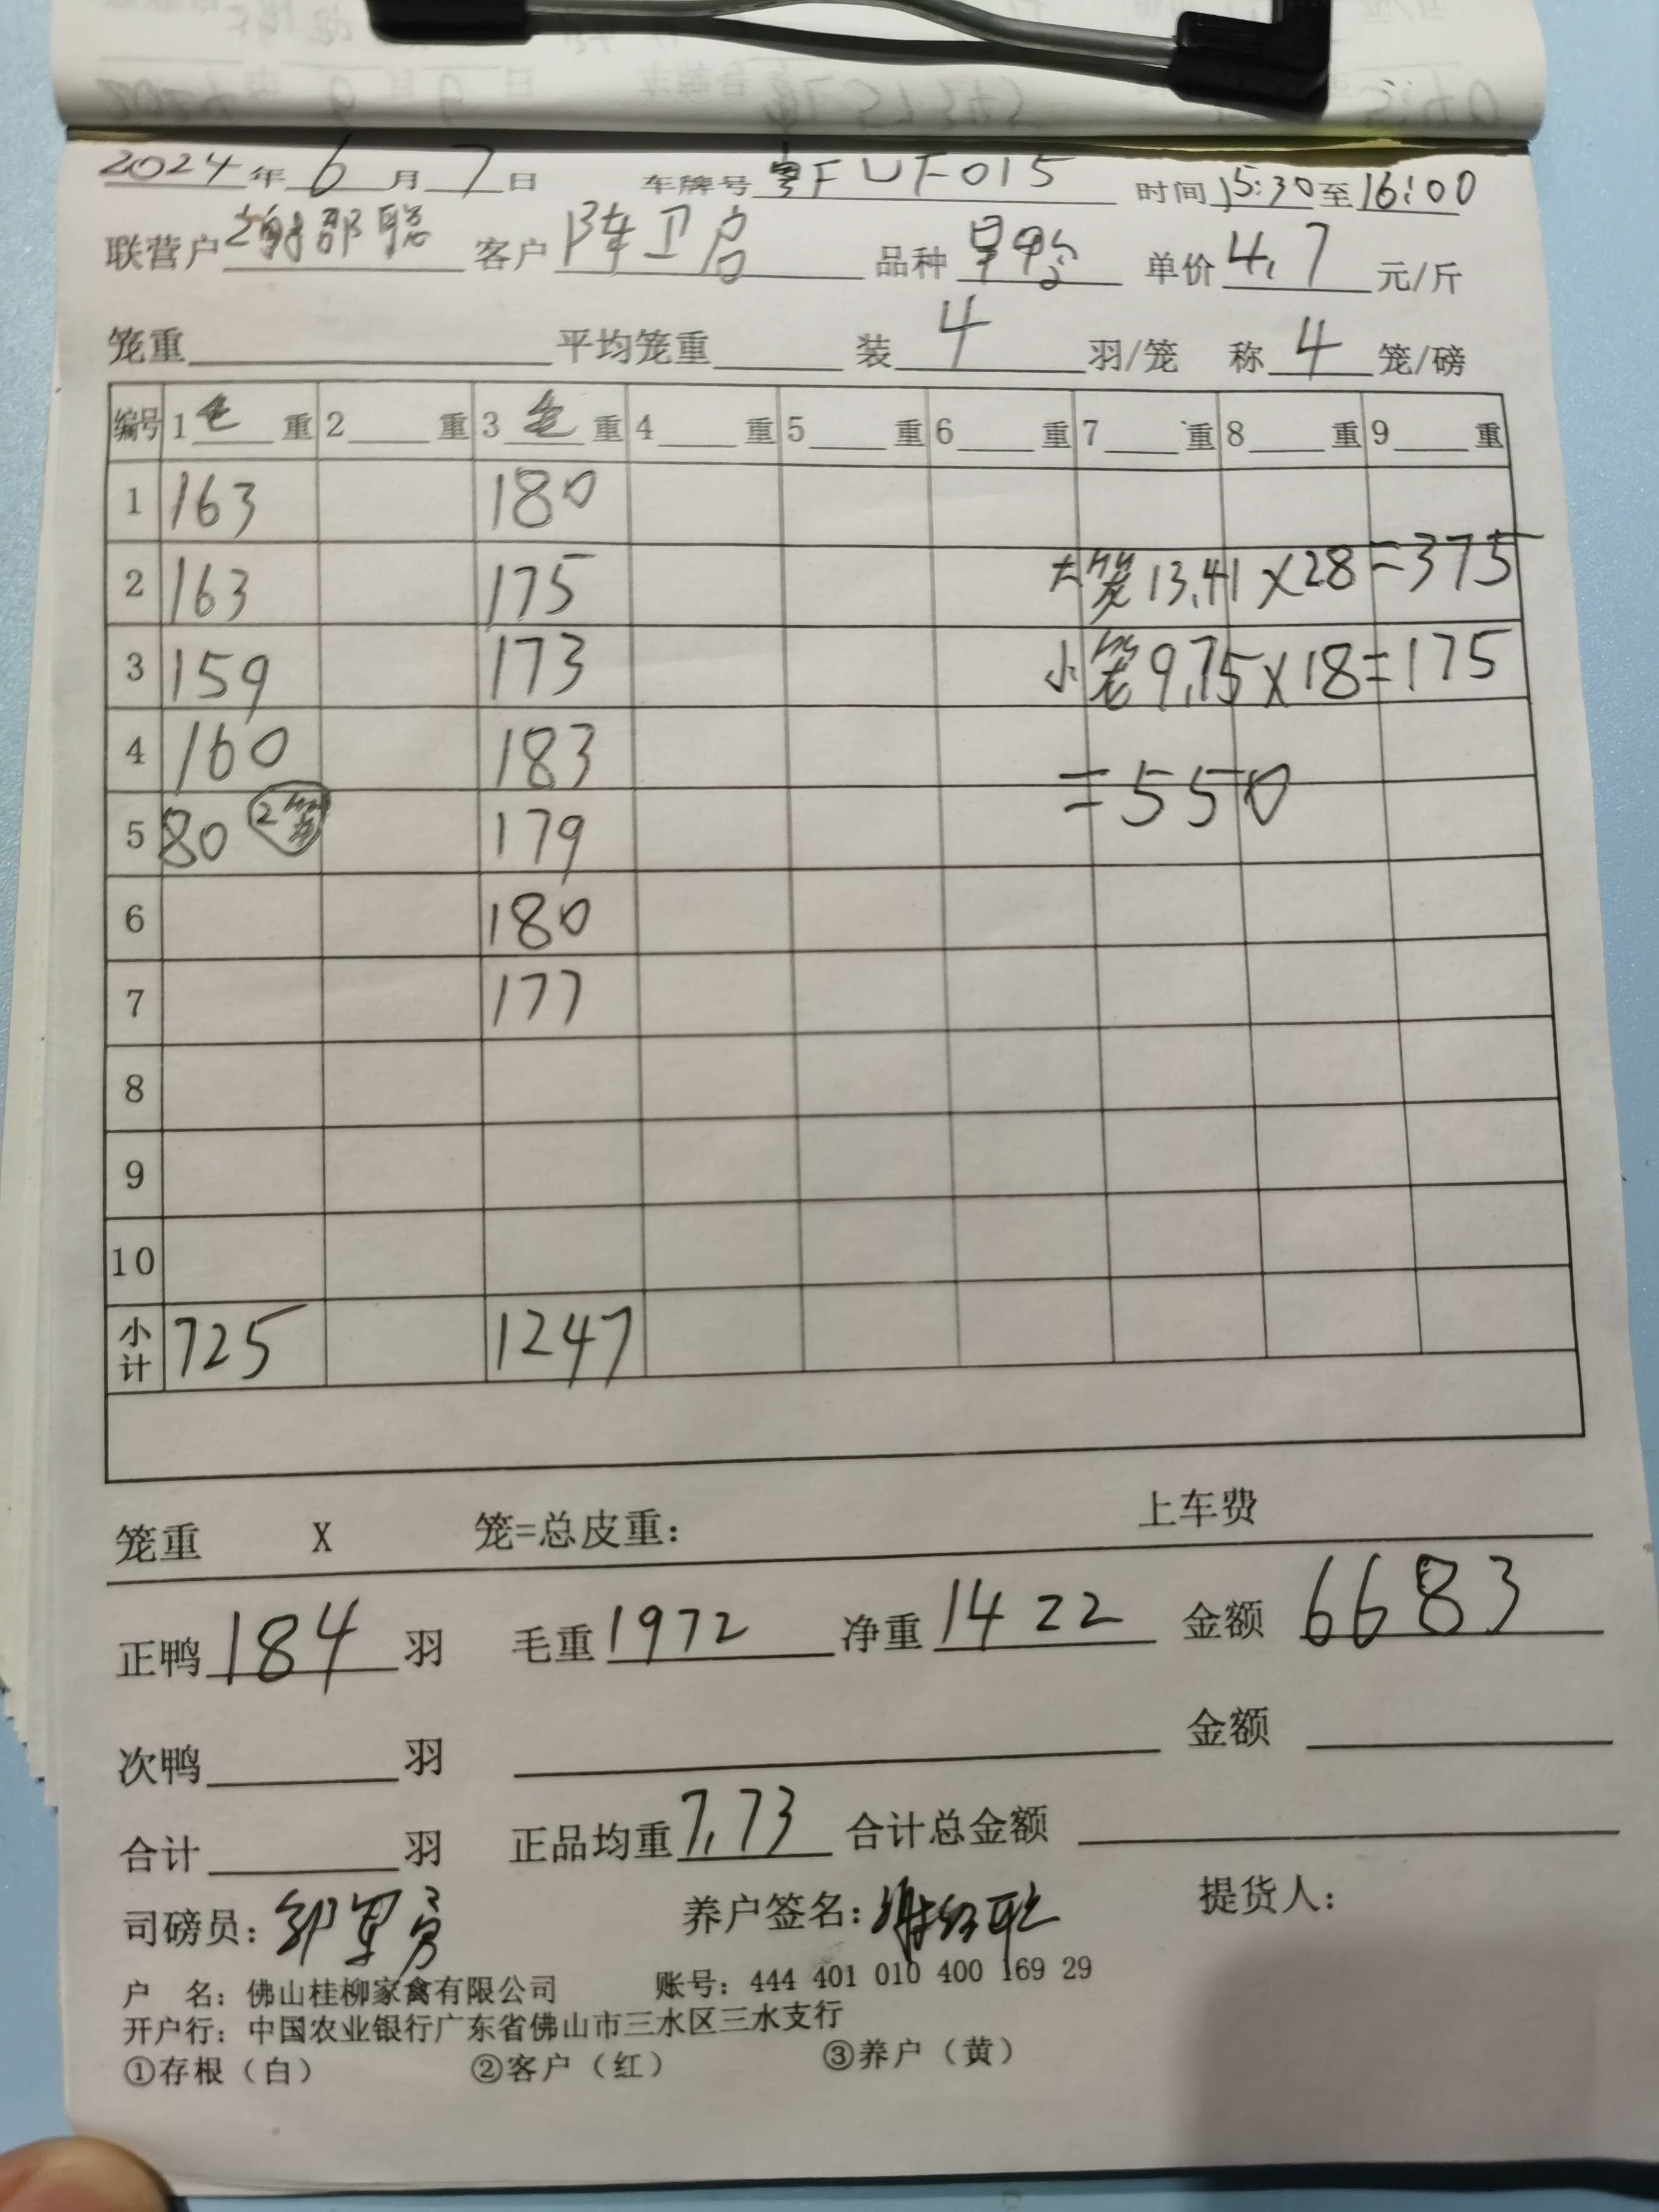 2024年6月7日 车牌号粤FUF015 时间15:30至16:00
联营户 客户陈卫启 品种 单价4.7元/斤
笼重 平均笼重 装4羽/笼 称4笼/磅
编号 1毛重 2重 3毛重 4重 5重 6重 7重 8重 9重
1 163 180
2 163 175 大笼13.41×28=375
3 159 173 小笼9.75×18=175
4 160 183
=550
5 80 2笼 179
6 180
7 177
8
9
10
小计 725 1247
笼重 X 笼=总皮重: 上车费
正鸭184羽 毛重1972 净重1422 金额6683
次鸭 羽 金额
合计 羽 正品均重7.73 合计总金额
司磅员: 养户签名: 提货人:
户 名:佛山桂柳家禽有限公司 账号:444 401 010 400 169 29
开户行:中国农业银行广东省佛山市三水区三水支行
①存根(白) ②客户(红) ③养户(黄)